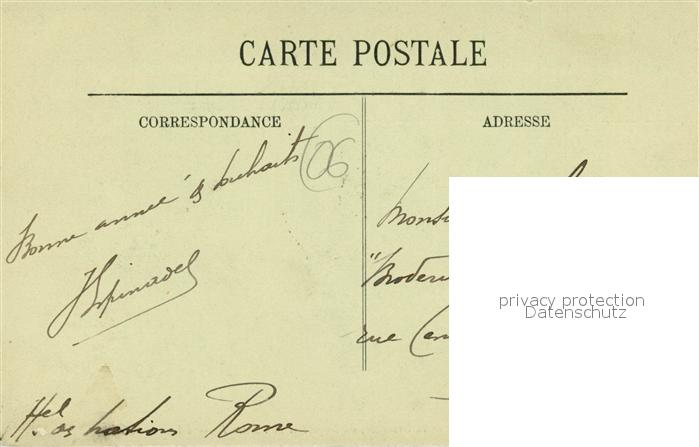 CARTE POSTALE
CORRESPONDANCE
ADRESSE
06
Bonne année & souhaits
Hel des nations Rome
"Broderi
rue
privacy protection
Datenschutz